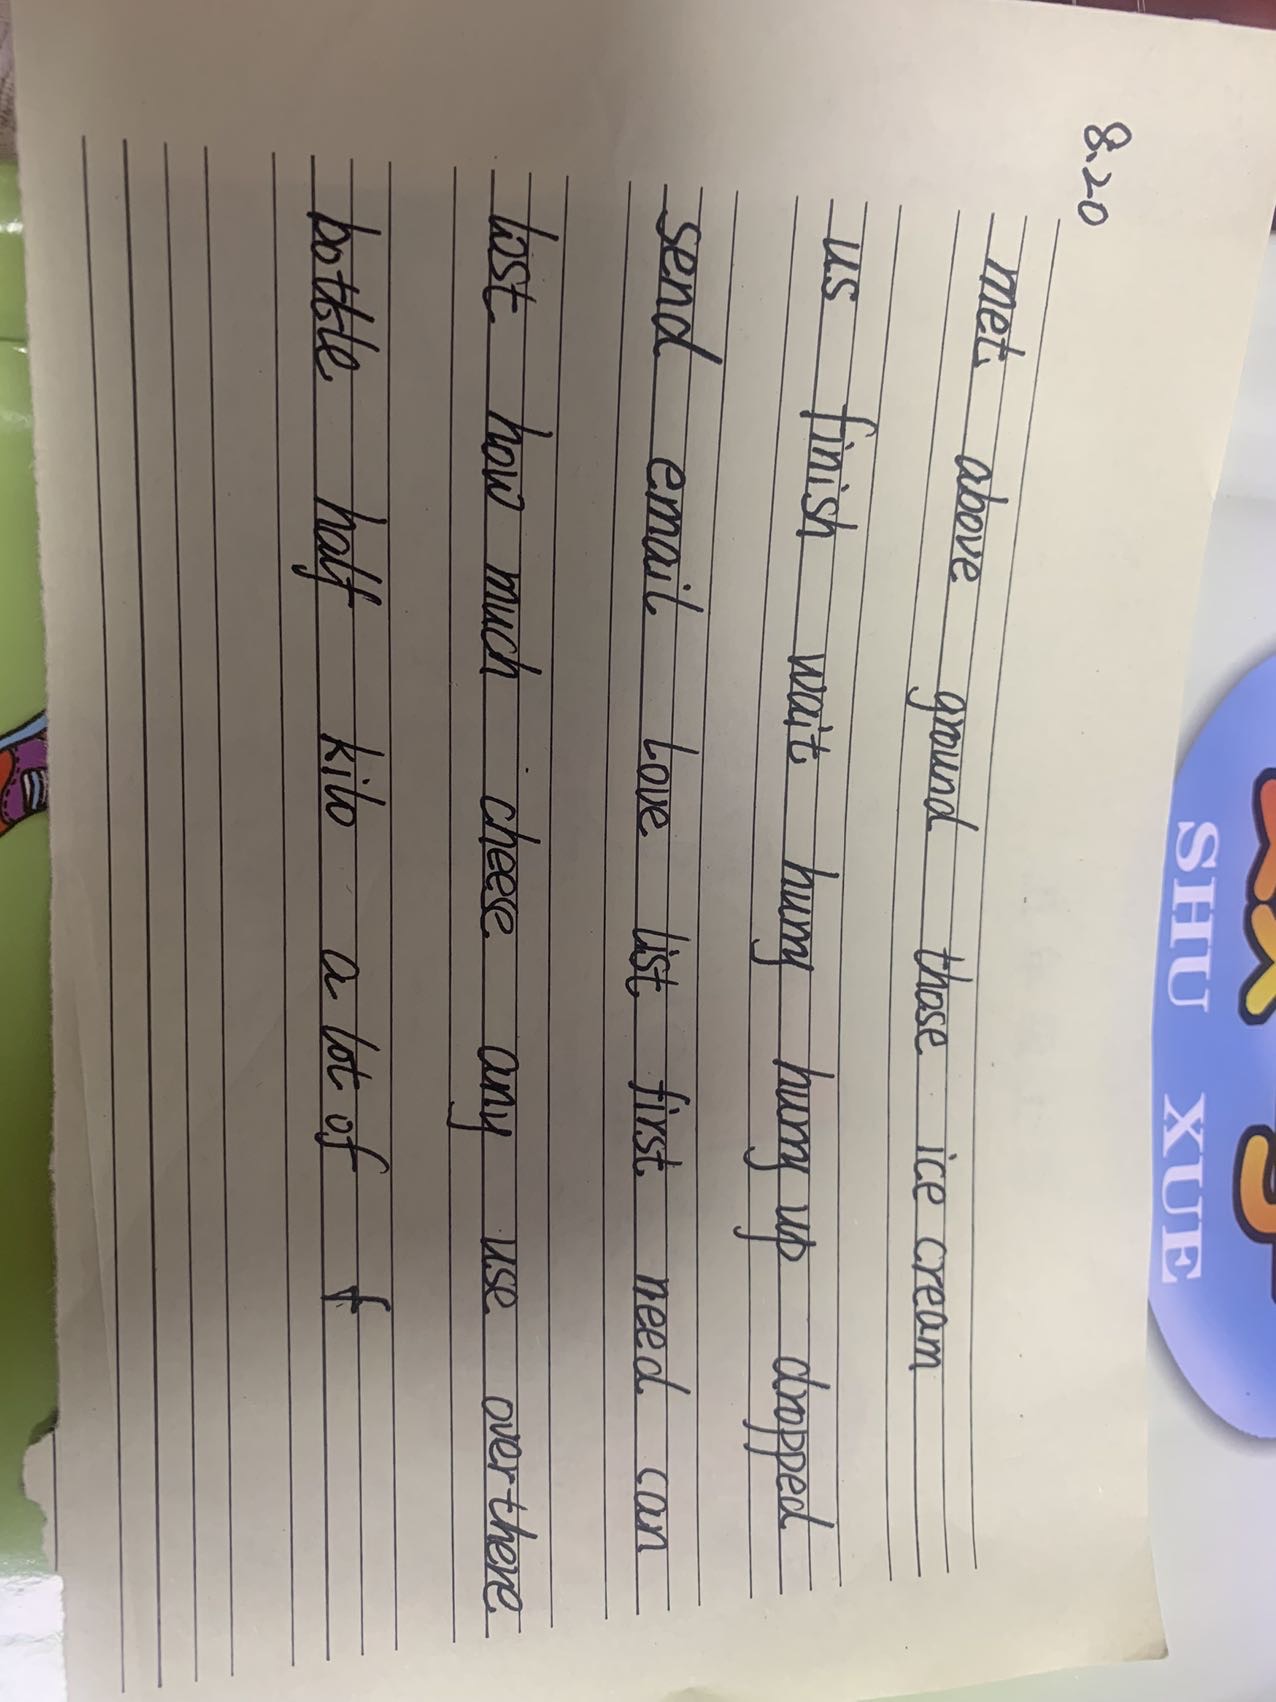 8.20
met above ground those ice cream
us finish wait hurry hurry up dropped
send email love list first need can
lost how much cheese any use over there
bottle half kilo a lot of f
SHU XUE